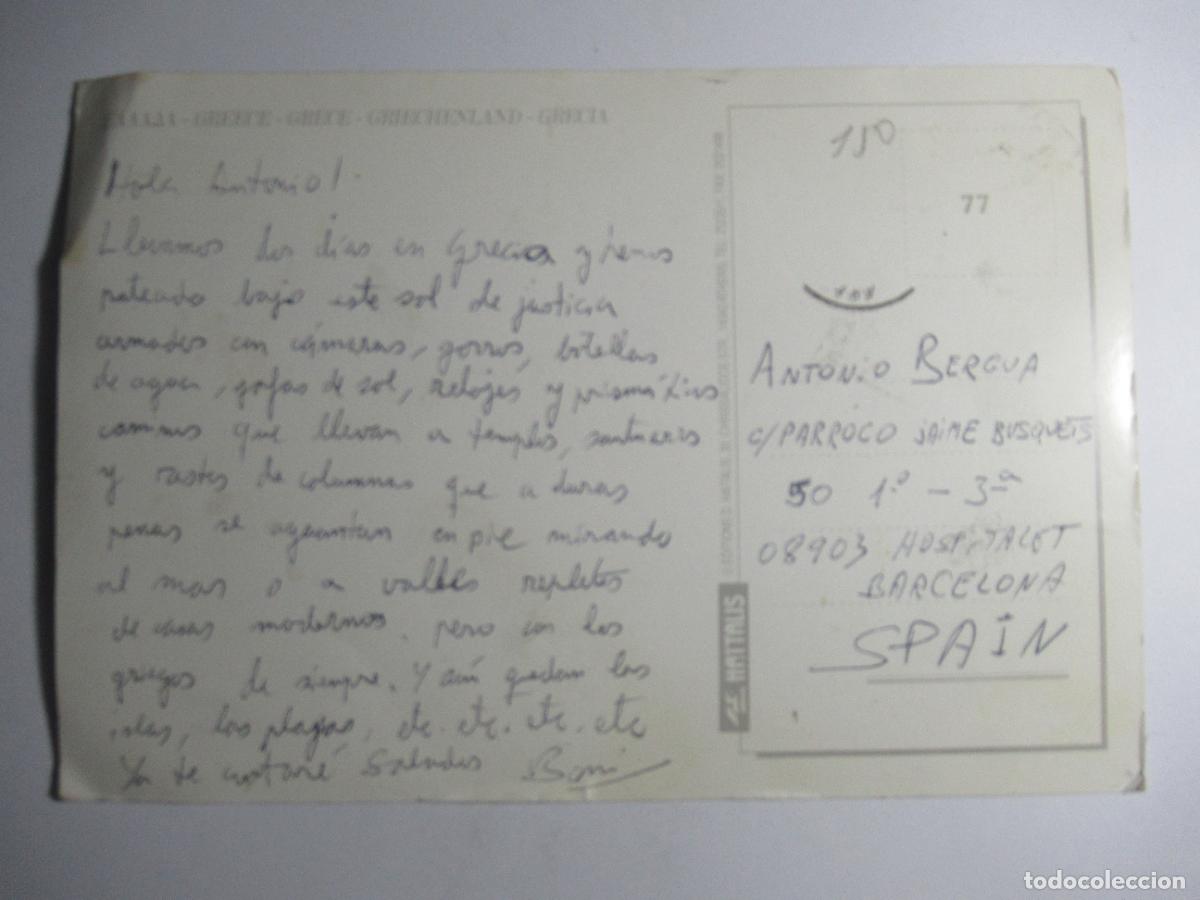 ΕΛΛΑΔΑ - GREECE - GRECE - GRIECHENLAND - GRECIA
Hola Antonio!
Llevamos dos días en Grecia y hemos
pateado bajo este sol de justicia
armados con cámaras, gorros, botellas
de agua, gafas de sol, relojes y prismáticos
caminos que llevan a templos, santuarios
y rastos de columnas que a duras
penas se aguantan en pie mirando
al mar o a valles repletos
de casas modernas, pero con los
griegos de siempre. Y aún quedan las
islas, las playas, etc. etc. etc. etc
Ya te contaré Saludos Boni
HAITALIS
150
77
ANTONIO BERGUA
C/PARROCO JAIME BUSQUETS
50 1º - 3ª
08903 HOSPITALET
BARCELONA
SPAIN
todocoleccion